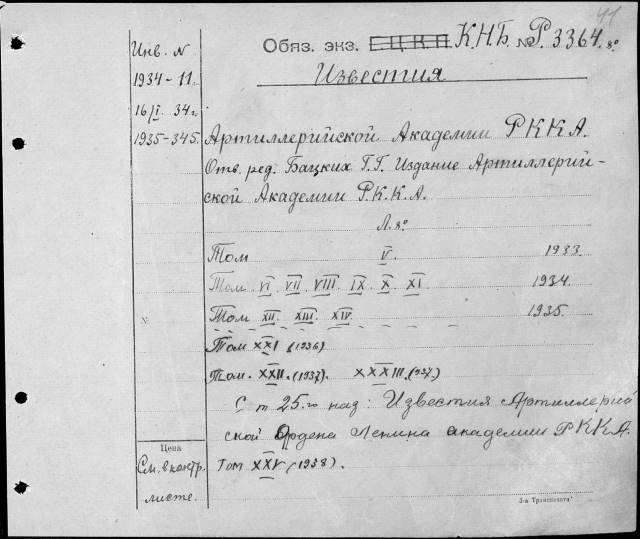 41
Обяз. экз. Е.Ц.К.П. К.Н.Б. № Р.3364. 8°
Инв. N
Известия
1934-11.
16/I. 34 г.
1935-345.
Артиллерийской Академии РККА.
Отв. ред. Бацких Г.Г. Издание Артиллерий-
ской Академии Р.К.К.А.
Л. 8°
Том V. 1933.
Том VI VII VIII IX X XI 1934.
Том XII. XIII. XIV. 1935.
N
Том XXI (1936)
Том. XXII. (1937). XXXIII. (937.)
С т 25.го наз: Известия Артиллерий
ской Ордена Ленина академии РККА.
Цена
См. в контр.
листе.
Том XXV (1938).
3-я Транспечати